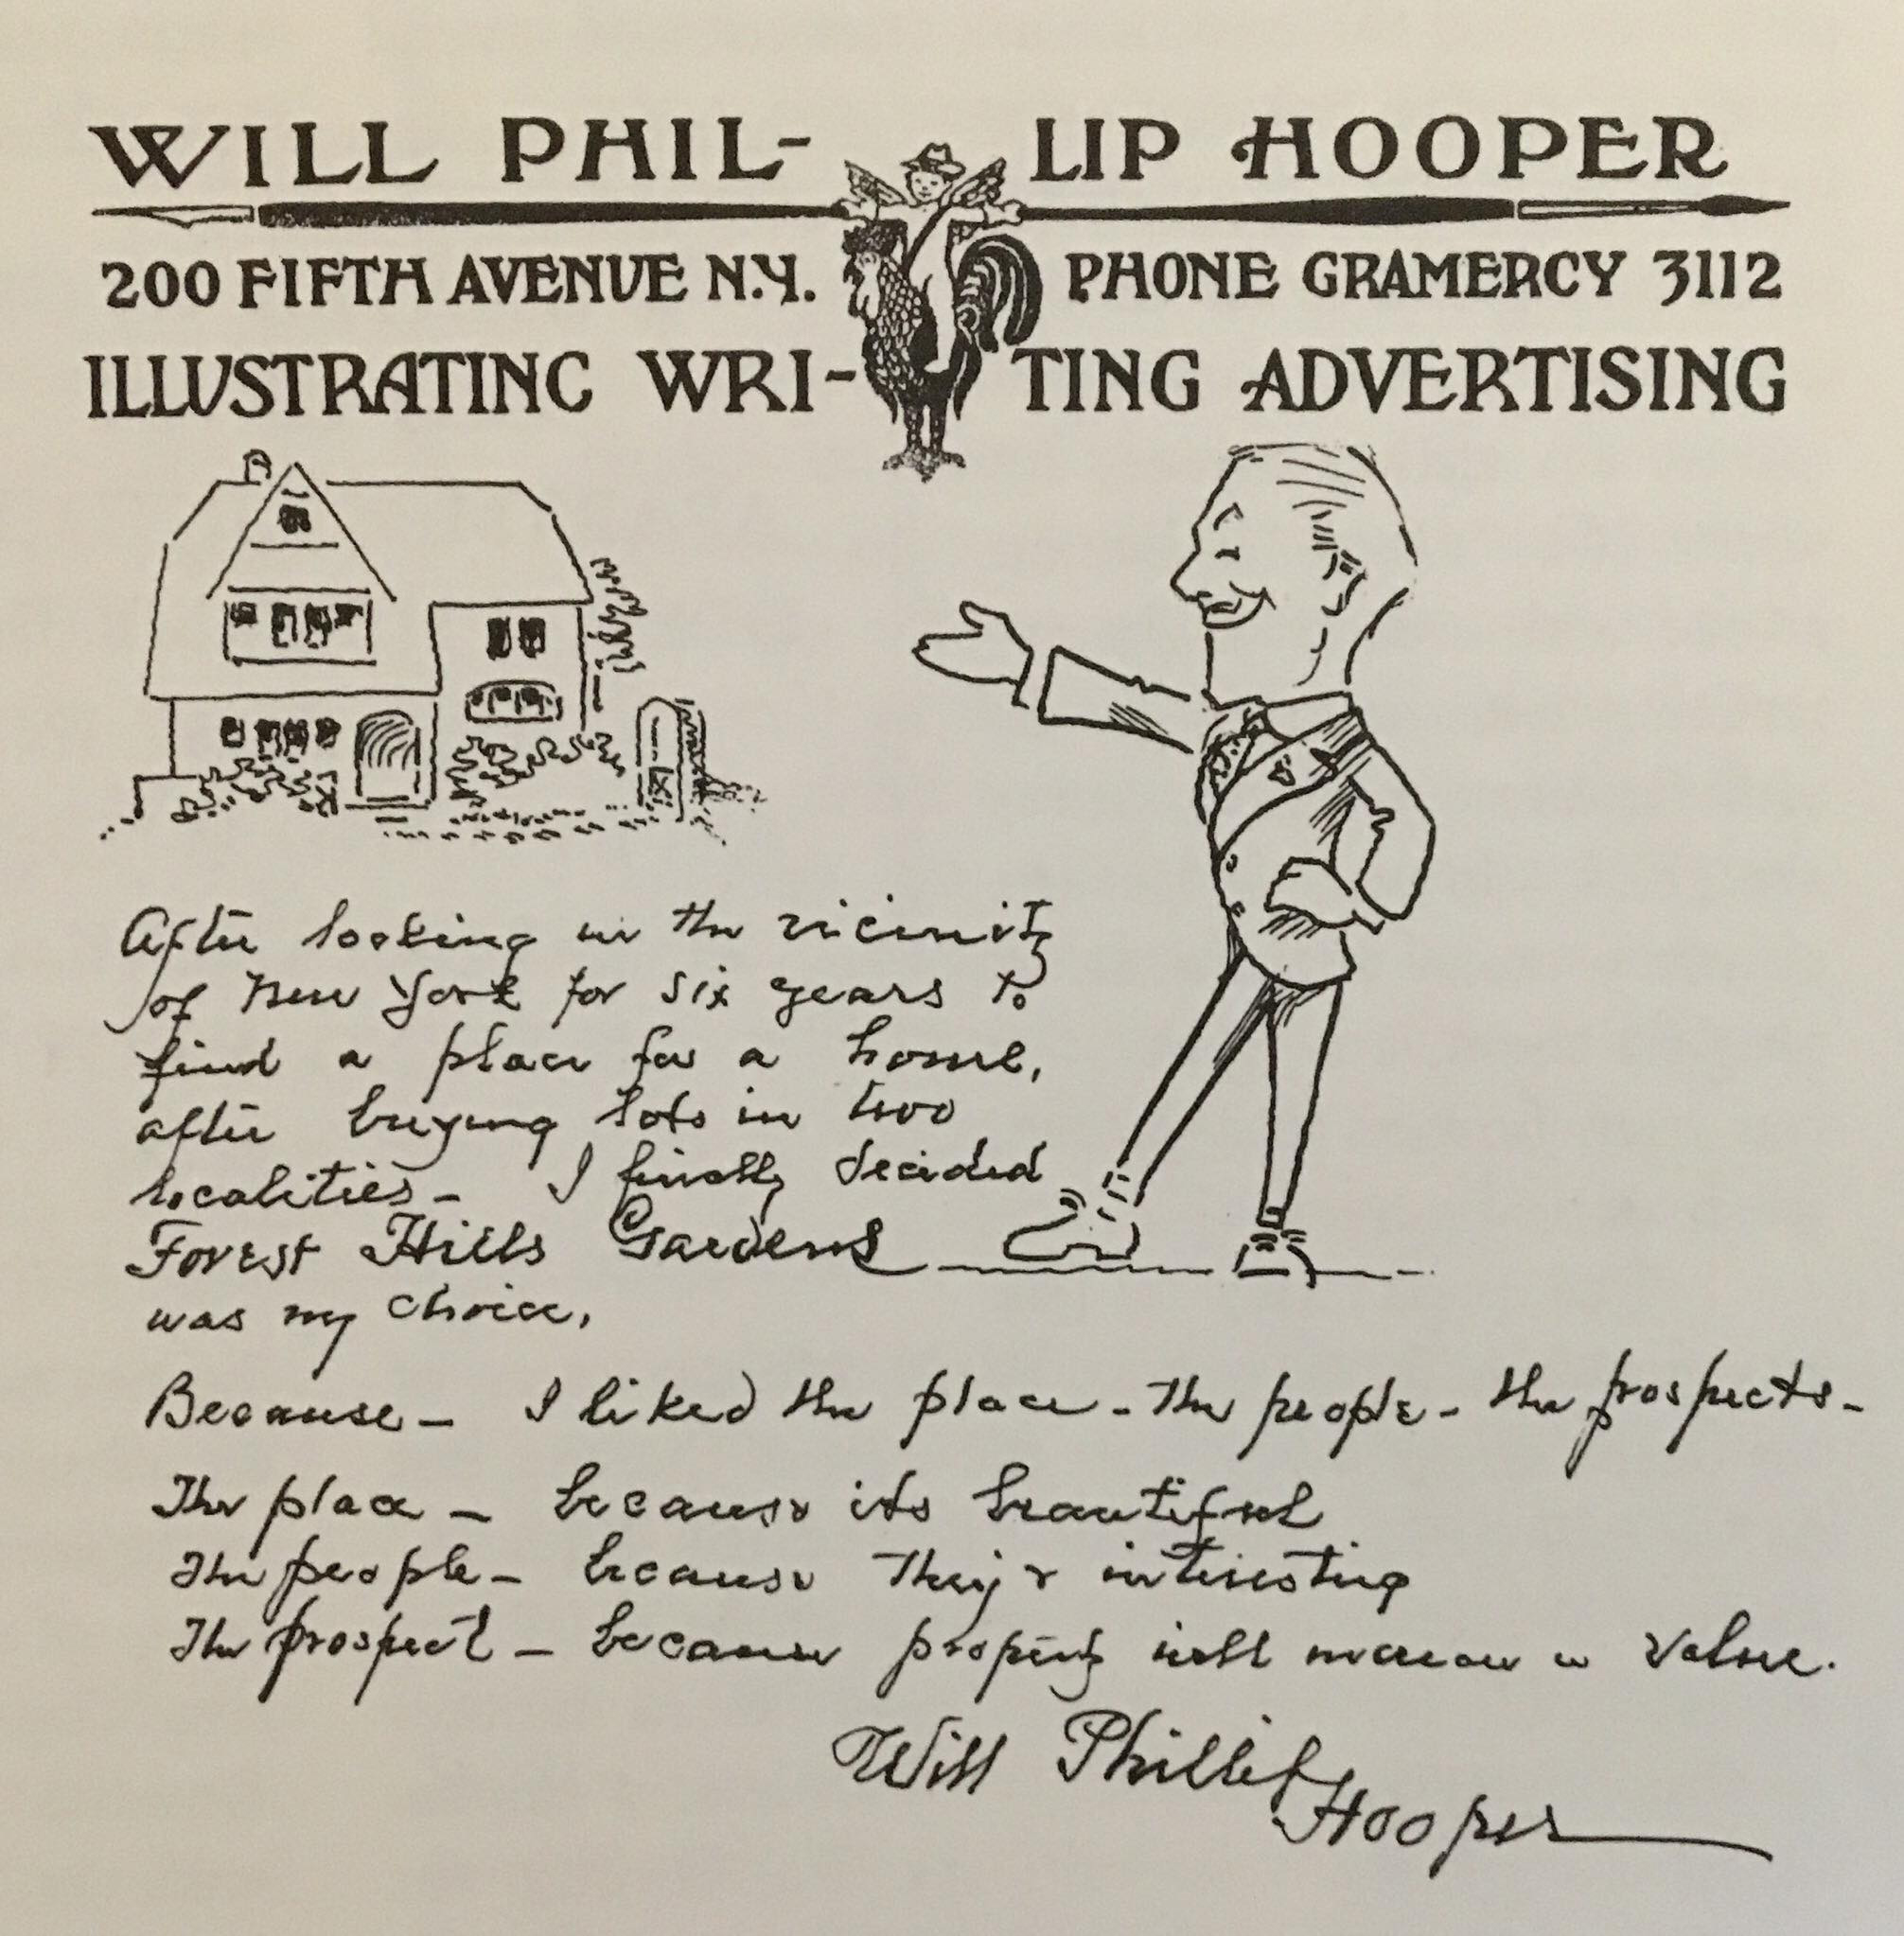 WILL PHIL- LIP HOOPER
200 FIFTH AVENUE N.Y. PHONE GRAMERCY 3112
ILLUSTRATING WRI- TING ADVERTISING
After looking in the vicinity
of New York for six years to
find a place for a home,
after buying lots in two
localities - I finally decided
Forest Hills Gardens
was my choice,
Because - I liked the place - the people - the prospects -
The place - because its beautiful
The people - because they'r interesting
The prospect - because property will increase in value.
Will Phillip
Hooper